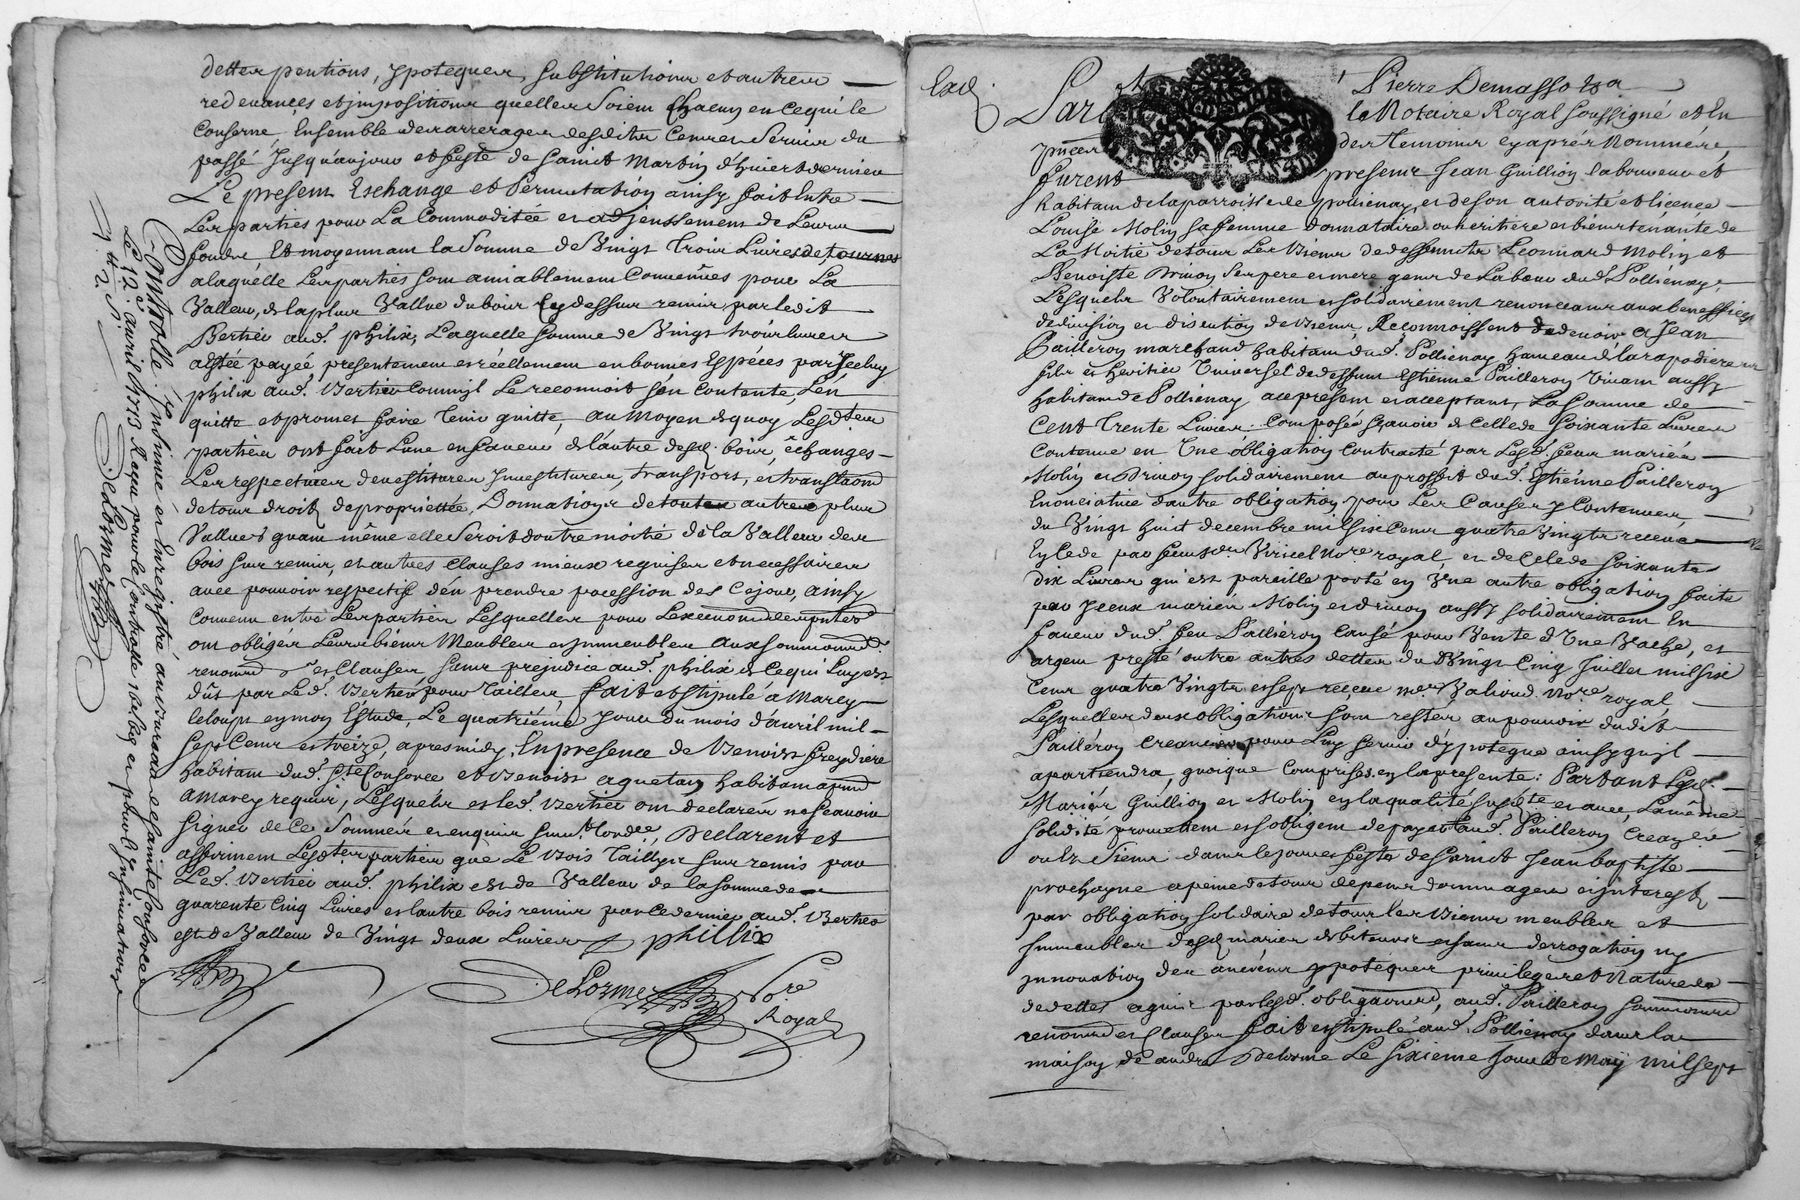 dettes pentions, ypoteques, substitutions et autres
redevances et impositions quelles soient chacun en ce qui le
conserne, Ensemble des arrerages desdits Cences servies du
passé Jusqu'aujour et feste de sainct Martin d'hivert dernier
Le present Eschange et Permutation ainsy fait Entre
Les parties pour La Commoditée et adjenssement de Leurs
fonds Et moyennant la Somme de Vingt Trois Livres de tournois
a laquelle Les parties sont amiablement Convenües pour La
Valleur, de la plus Vallue du bois Cy dessus remis par ledit
Bertier aud. philix, Laquelle somme de Vingt trois livres
a estée payée presentement et réellement en bonnes Especes par Jceluy
philix aud. Bertier Comm'jl Le reconnoit s'en contente, L'en
quitte et promet faire tenir quitte, au moyen de quoy Lesd. tes
parties ont fait L'une en faveur de l'autre desd. bois, échangés
Les respectives devestitures Jnvestitures, transport, et translaons
de tous droits de propriettée, Donnations de toutes autres plus
Vallues quant même elle seroit d'outre moitié de la Valleur des
bois sus remis, et autres clauses mieux requises et necessaires
avec pouvoir respectif d'en prendre pocession des Ce jour, ainsy
Convenu entre Les parties Lesquelles pour L'execuon des pntes
ont obligés Leurs biens Meubles et jmmeubles aux soumissions
renons et Clauses, sans prejudice aud. philix de ce qui Luy est
dût par Led. Bertier pour Tailles, fait et stipulé a Marcy
le loup en mon Estude, Le quatriéme jour du mois d'avril mil
sept Cent et treize, apres midy, En presence de Benoist freydiere
habitant dud. Ste Consorce et Benoist aquetan habitant aud.
a Marcy requis, Lesquels et led. Bertier ont declarés ne scavoir
signer de Ce sommés et enquis suivt. Lordce, Declarent et
affirment Lesdtes parties que Le bois Taillis sus remis par
Led. Bertier aud. philix est de Valleur de la somme de
quarente Cinq Livres et l'autre bois remis par ce dernier aud. Bertier
est de Valleur de Vingt deux Livres phillix
DeLorme Nore
Royal
Conttrolle Jnsinué et Enregistré au bureau de sainte Consorce
Le 12e. avril 1713 Reçu pour le Controlle
Delorme
Exd.
Par Pierre Demasso
le Notaire Royal soussigné et En
des temoins cy aprés Nommés,
furent presens Jean Guillion laboureur et
habitant de la parroisse de pollienay, et de son autorité et licence
Louise Molin sa femme donnataire ou heritiere et bien tenante de
La Moitié de tous Les biens de deffuncts Leonnard Molin et
Benoiste Drivon ses pere et mere gens de Labeur dud. Pollienay,
Lesquels Volontairement et solidairement renonceant aux beneffices
de division et discution de biens, Reconnoissent de devoir a Jean
Pailleron marchand habitant dud. Pollienay hameau de la rapodiere
fils et heritier Universel de deffunt Estienne Pailleron Vivant aussy
habitant de Pollienay ace present et acceptant, La somme de
Cent Trente Livres: Composée scavoir de Celle de soixante Livres
Contenue en Une obligation Contractée par Lesd. feus mariés
Molin et Drivon solidairement au proffit dud. Estienne Pailleron
Enonciative d'autre obligation, pour Les Causes y Contenues,
du Vingt huit decembre mil six Cent quatre Vingts
royal, et de Celle de soixante
dix Livres qui est pareille porté en Une autre obligation faite
par Jceux mariés Molin et drivon aussy solidairement En
faveur dud. feu Pailleron Causé pour Vente d'Une Vache, et
argent presté outre autres dettes du Vingt Cinq Juillet mil six
Cent quatre Vingts et sept reçeue me Nore royal,
Lesquelles deux obligations sont restées au pouvoir dudit
Pailleron Creancier pour Luy servir d'ypoteque ainsy qu'jl
apartiendra, quoique Comprises en la presente: Partant Lesd.
Mariés Guillion et Molin en la qualité susdte et avec La même
solidité promettent et s'obligent de payer aud. Pailleron Creancier
ou Es siens dans le jour et feste de sainct Jean baptiste
prochayne a peine de tous depens dommages et jnterests
par obligation solidaire de tous les biens meubles et
Jmmeubles desd. mariés debiteurs et sans derrogation ny
jnnovation des anciens ypoteques privileges et Nature de
dettes a quis par lesd. obligations, aud. Pailleron soumissions
renons et Clauses fait et stipulé aud. Pollienay dans la
maison de andré Delorme Le sixieme Jour De May mil sept